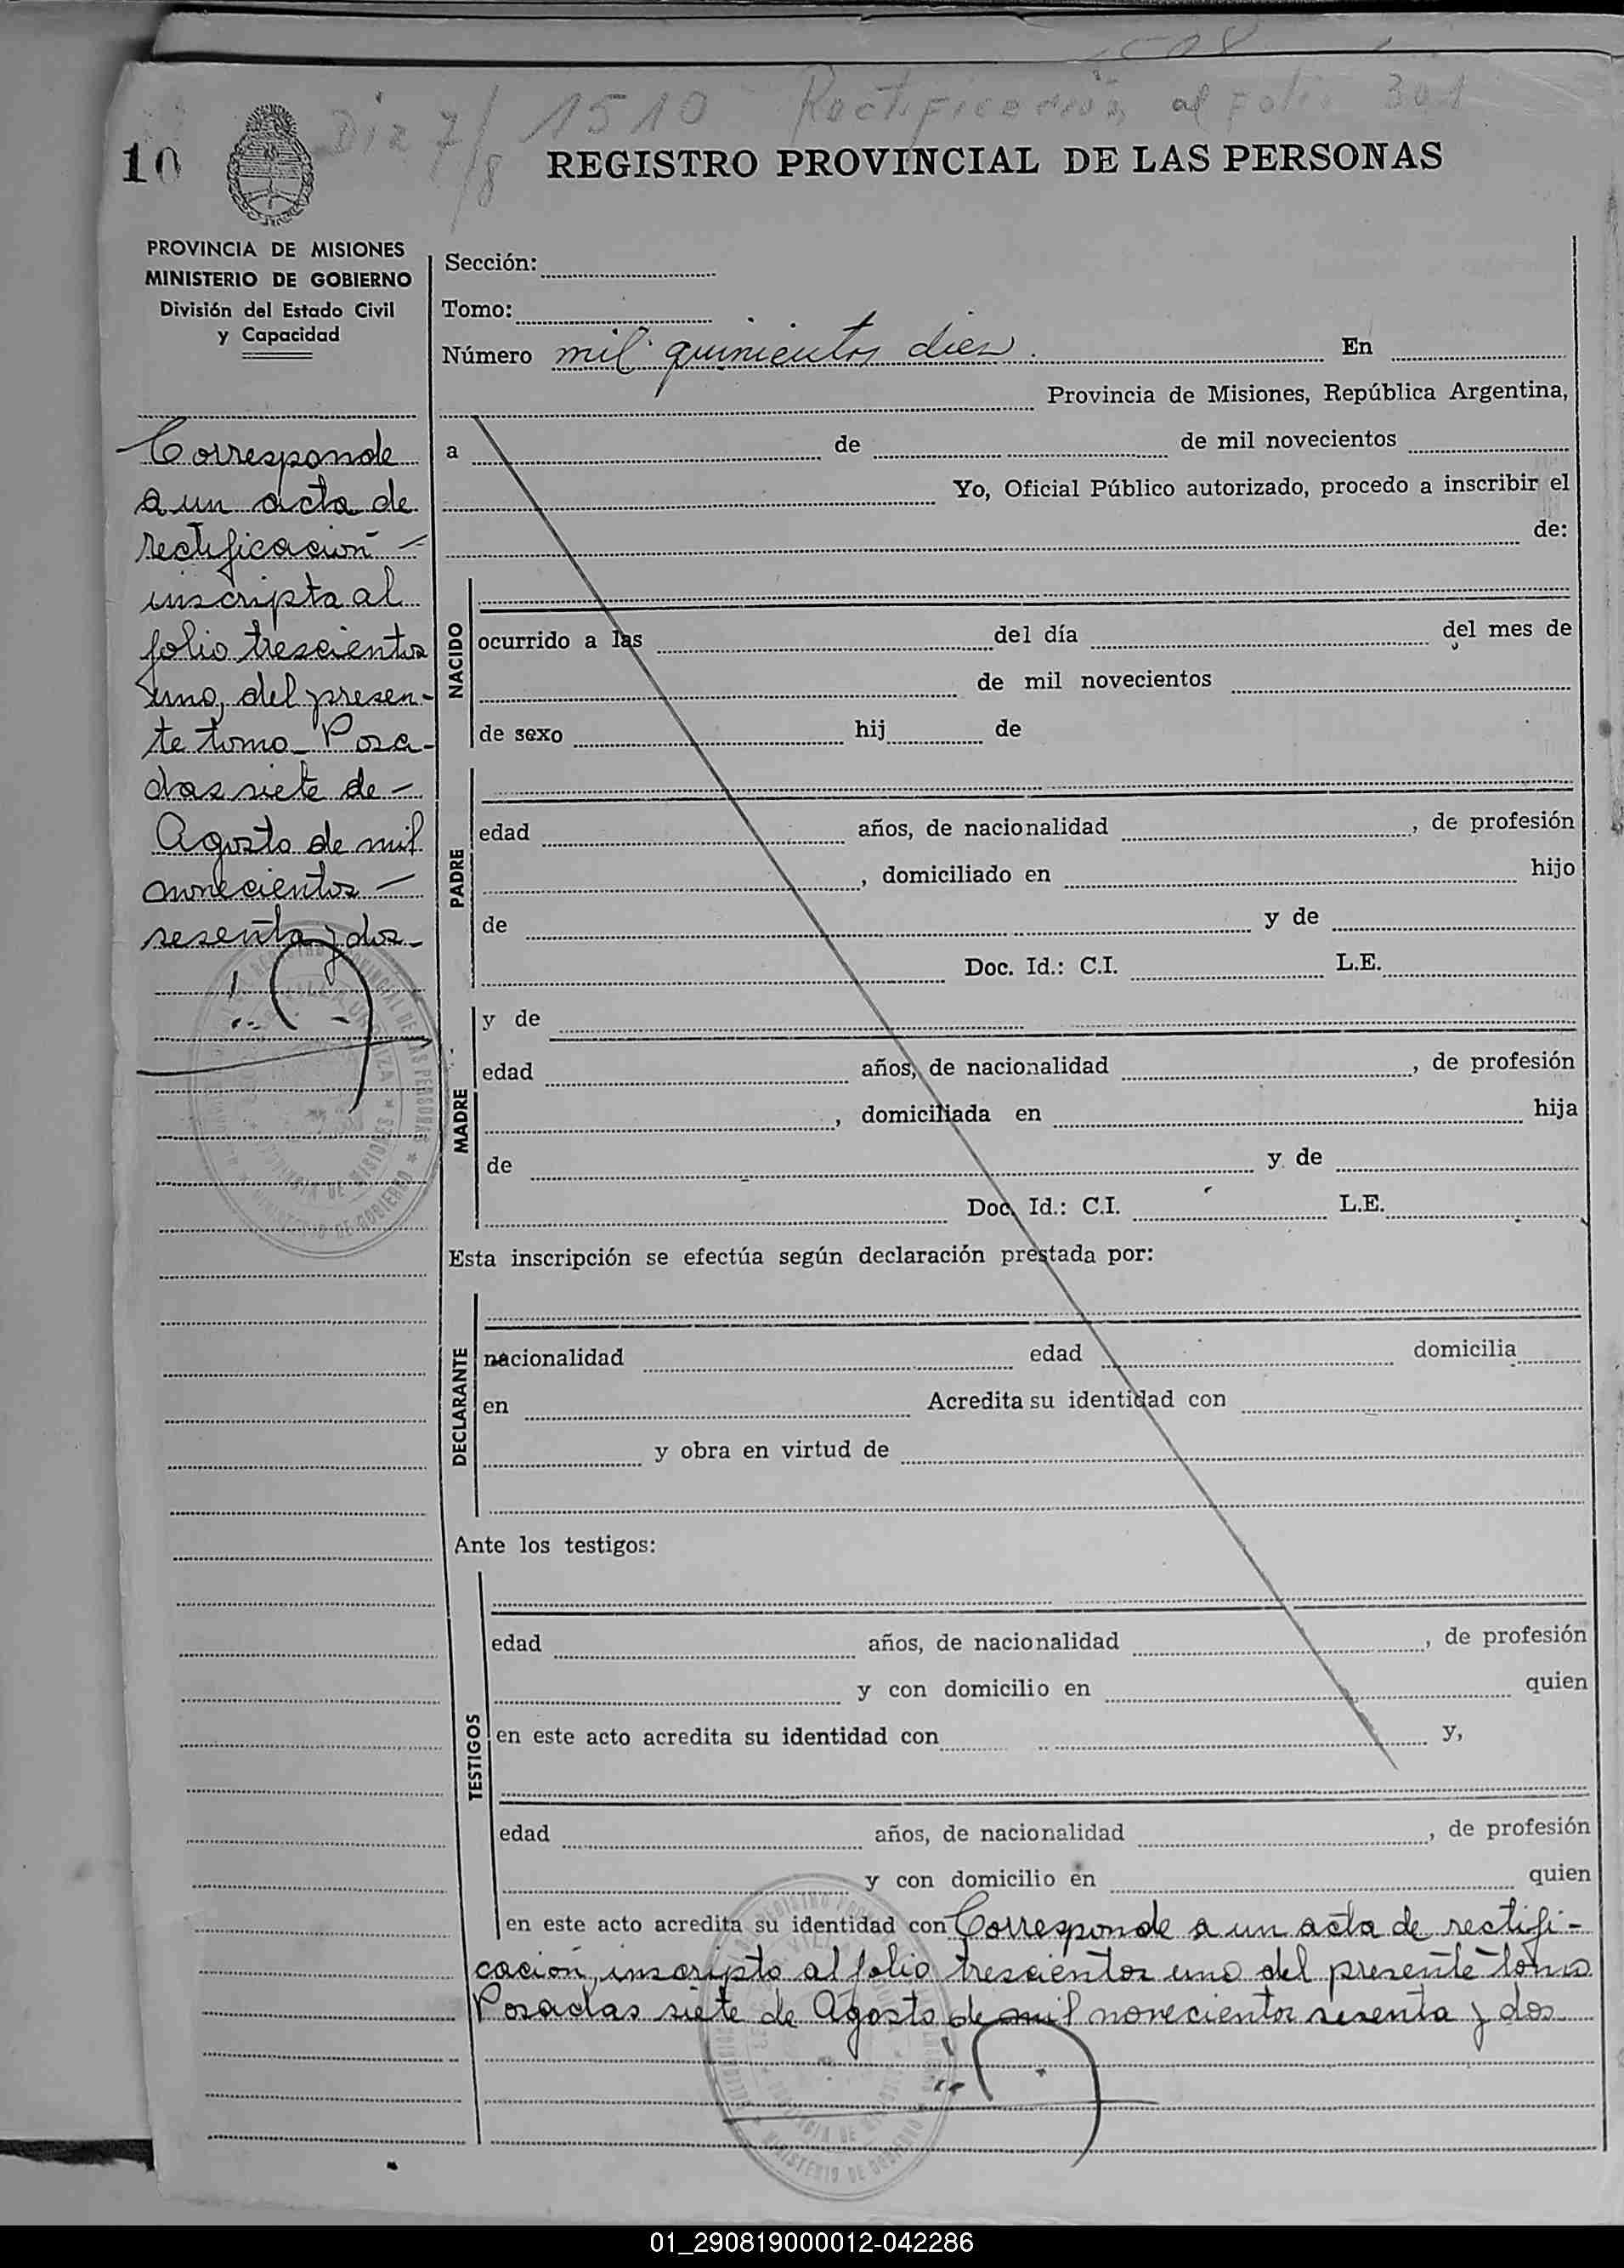 Dia 7/8 1510 Rectificación al folio 301
10
REGISTRO PROVINCIAL DE LAS PERSONAS
PROVINCIA DE MISIONES
MINISTERIO DE GOBIERNO
División del Estado Civil
y Capacidad
Corresponde
a un acta de
rectificación -
inscripta al
folio trescientos
uno, del presen-
te tomo - Posa-
das siete de -
Agosto de mil
novecientos -
sesenta y dos -
Sección:
Tomo:
Número mil quinientos diez. En
Provincia de Misiones, República Argentina,
a de de mil novecientos
Yo, Oficial Público autorizado, procedo a inscribir el
de:
NACIDO
ocurrido a las del día del mes de
de mil novecientos
de sexo hij de
PADRE
edad años, de nacionalidad , de profesión
, domiciliado en hijo
de y de
Doc. Id.: C.I. L.E.
MADRE
y de
edad años, de nacionalidad , de profesión
, domiciliada en hija
de y de
Doc. Id.: C.I. L.E.
Esta inscripción se efectúa según declaración prestada por:
DECLARANTE
nacionalidad edad domicilia
en Acredita su identidad con
y obra en virtud de
Ante los testigos:
TESTIGOS
edad años, de nacionalidad , de profesión
y con domicilio en quien
en este acto acredita su identidad con y,
edad años, de nacionalidad , de profesión
y con domicilio en quien
en este acto acredita su identidad con Corresponde a un acta de rectifi-
cación, inscripto al folio trescientos uno del presente tomo
Posadas siete de Agosto de mil novecientos sesenta y dos
01_290819000012-042286